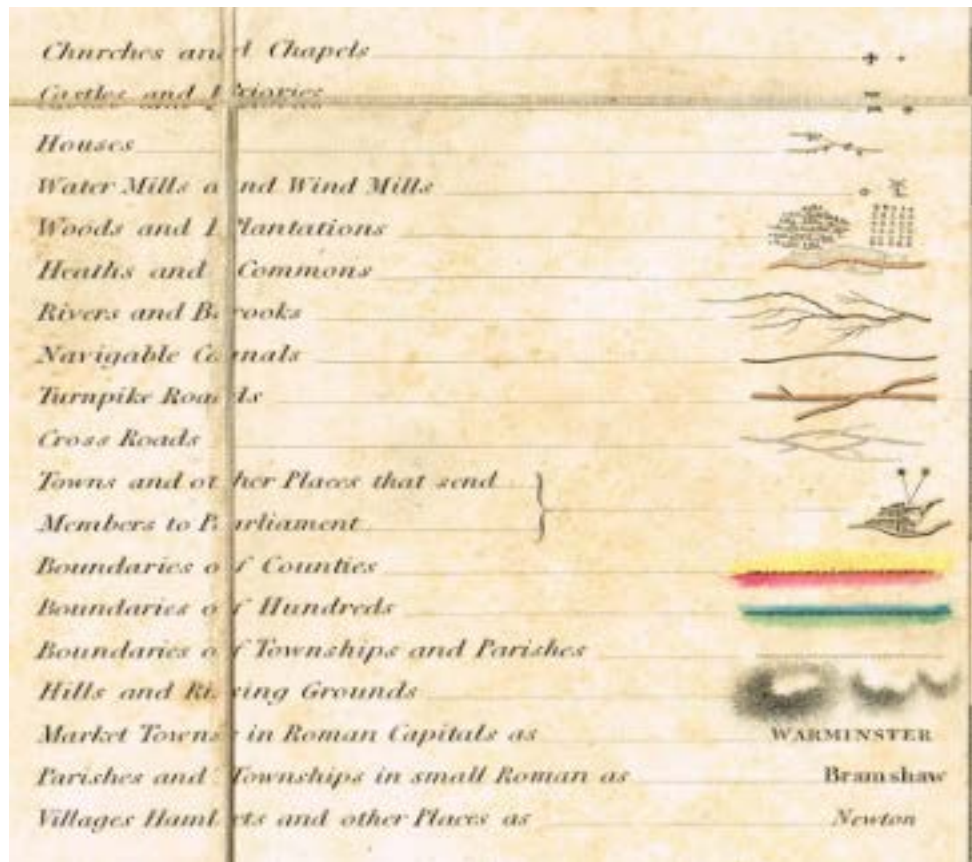 Churches and Chapels
Castles and Priories
Houses
Water Mills and Wind Mills
Woods and Plantations
Heaths and Commons
Rivers and Brooks
Navigable Canals
Turnpike Roads
Cross Roads
Towns and other Places that send
Members to Parliament
Boundaries of Counties
Boundaries of Hundreds
Boundaries of Townships and Parishes
Hills and Rising Grounds
Market Towns in Roman Capitals as WARMINSTER
Parishes and Townships in small Roman as Bramshaw
Villages Hamlets and other Places as Newton